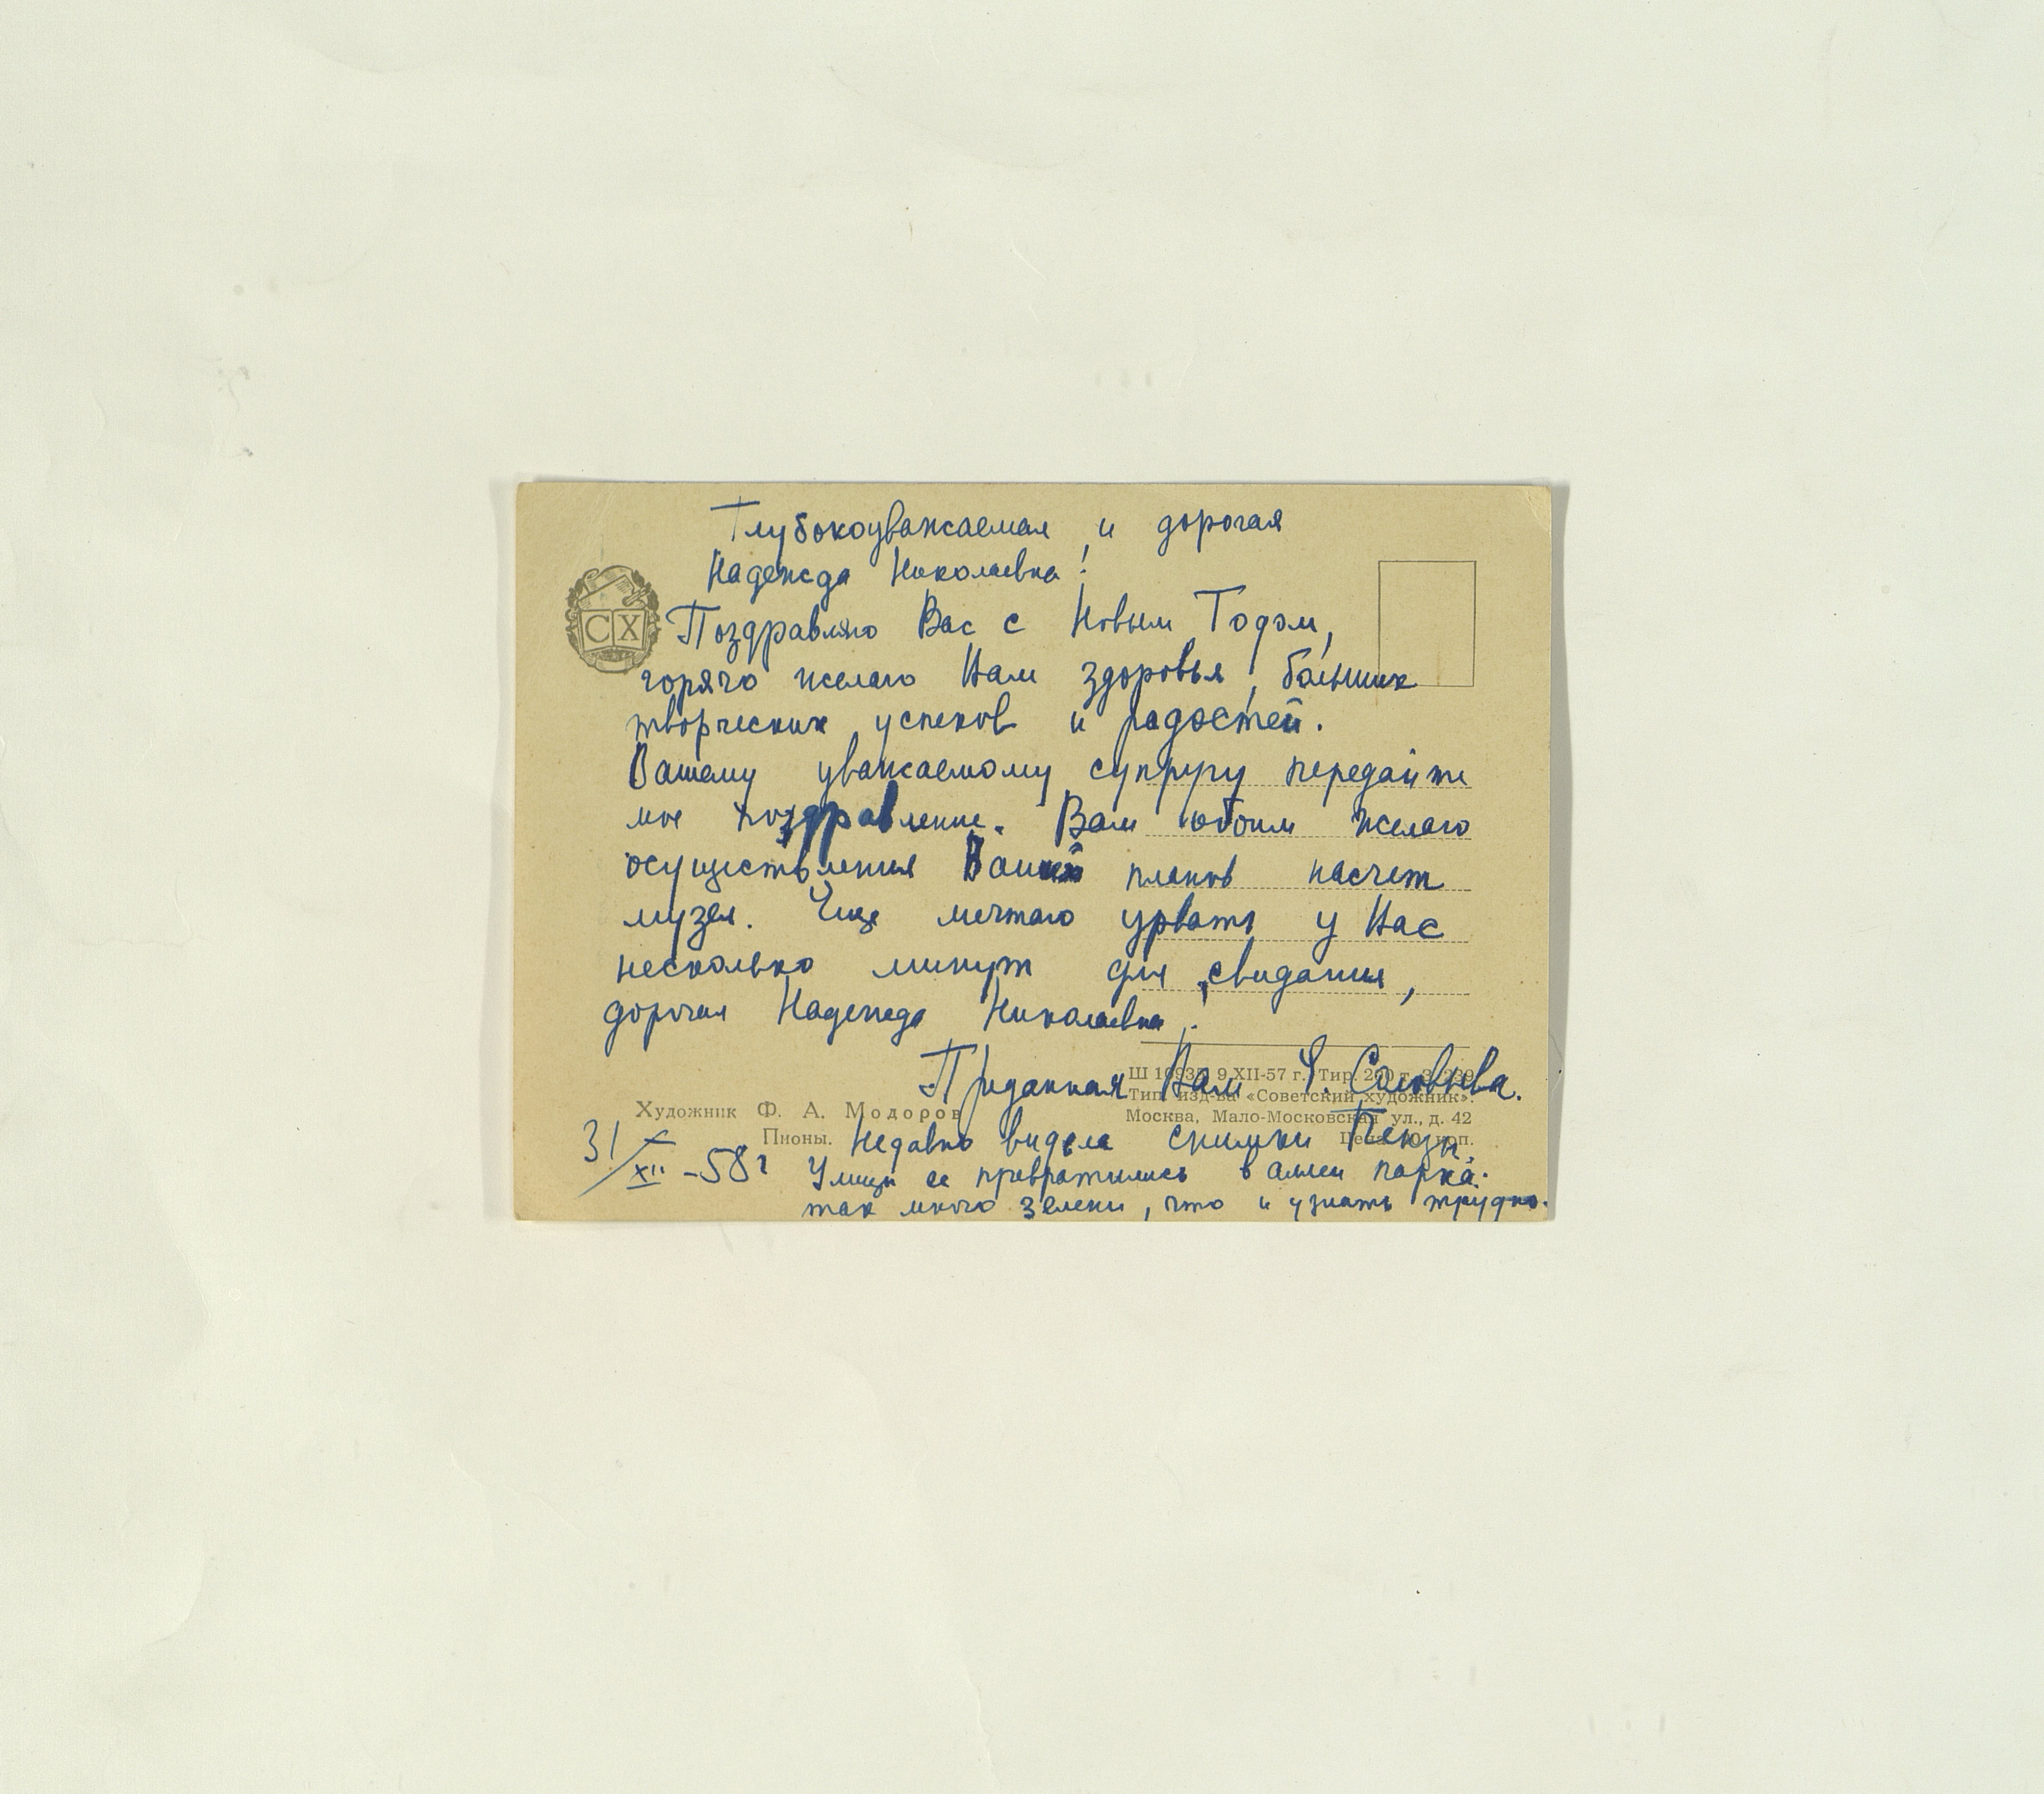 Глубокоуважаемая и дорогая
Надежда Николаевна!
СХ
Поздравляю Вас с Новым Годом,
горячо желаю Вам здоровья, больших
творческих успехов и радостей.
Вашему уважаемому супругу передайте
мое поздравление. Вам обоим желаю
осуществления Ваших планов насчет
музея. Еще мечтаю урвать у Вас
несколько минут для свидания,
дорогая Надежда Николаевна.
Преданная Вам Е. Соловьева.
Ш 10935. 9.XII-57 г. Тир. 200 т. З. 239
Тип. изд-ва «Советский художник».
Москва, Мало-Московская ул., д. 42
Цена коп.
Художник Ф. А. Модоров
Пионы.
31/XII-58 г
Недавно видела снимки Пензы.
Улицы ее превратились в аллеи парка:
так много зелени, что и узнать трудно.